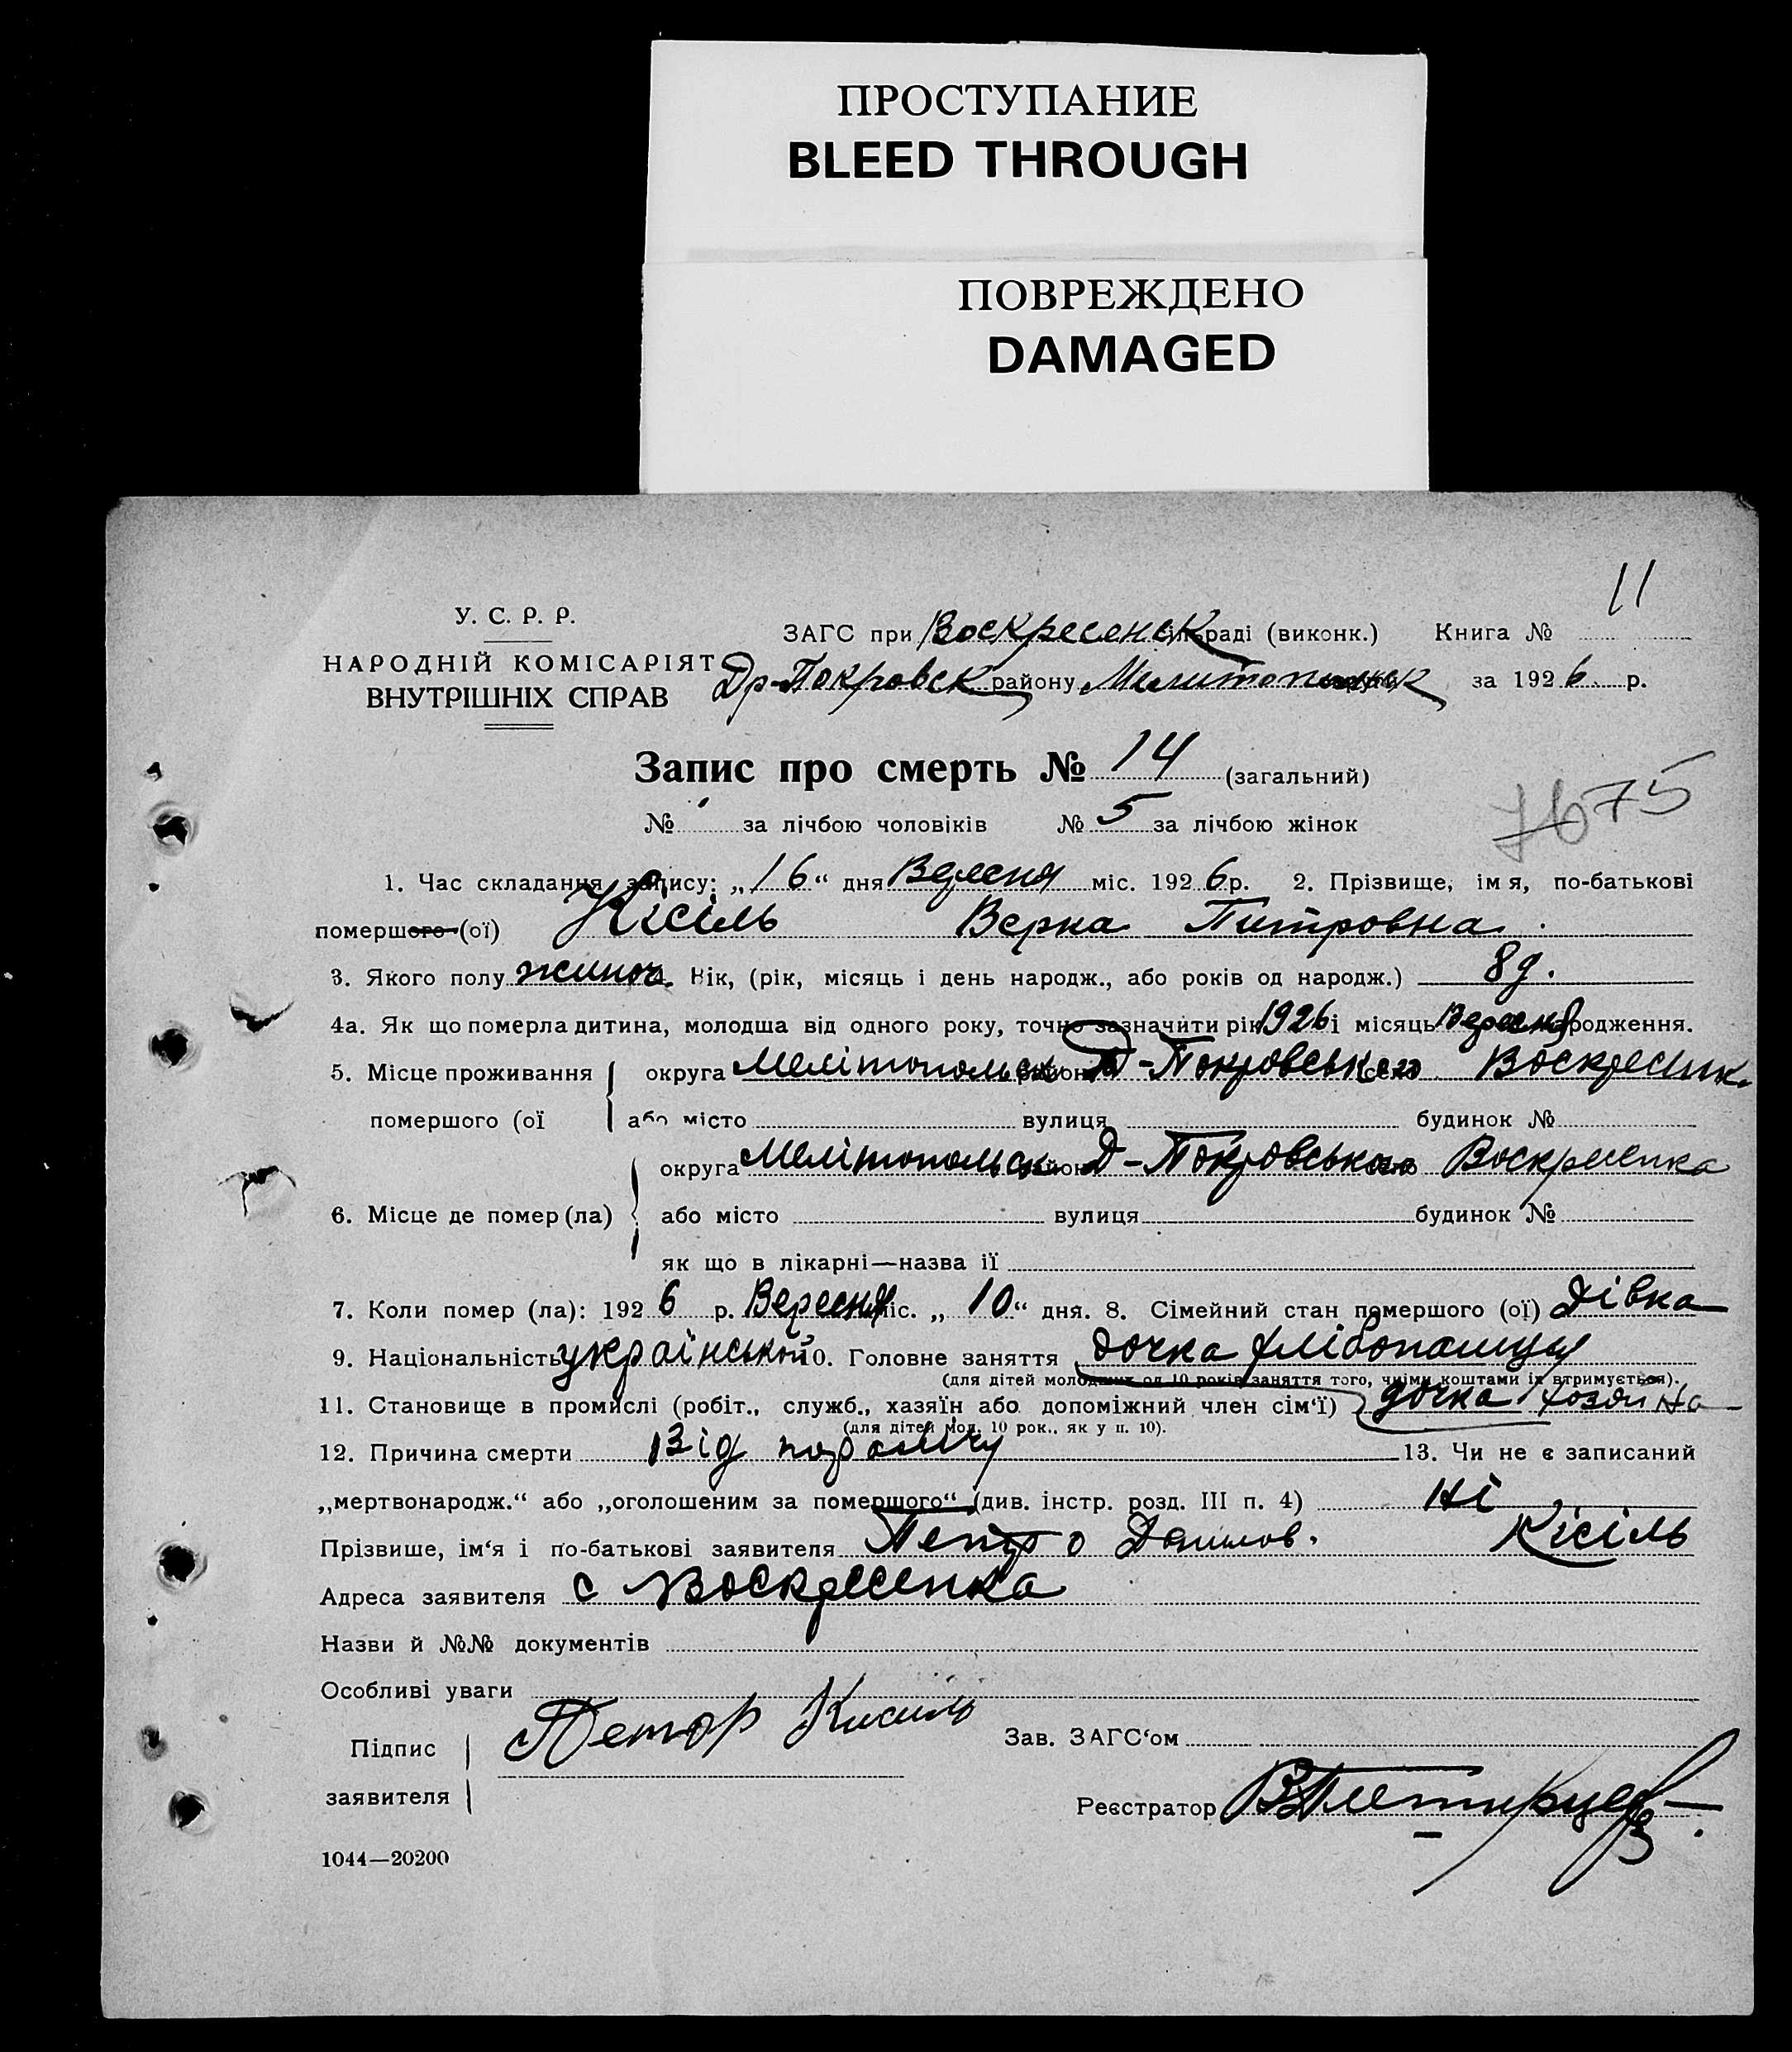 ПРОСТУПАНИЕ
BLEED THROUGH
ПОВРЕЖДЕНО
DAMAGED
11
У. С. Р. Р.
НАРОДНІЙ КОМІСАРІЯТ
ВНУТРІШНІХ СПРАВ
ЗАГС при Воскресенск раді (виконк.) Книга №
Др-Покровск району Милитопольск за 1926 р.
Запис про смерть № 14 (загальний)
№ за лічбою чоловіків № 5 за лічбою жінок
75
1. Час складання запису: „16“ дня Вересня міс. 1926 р. 2. Прізвище, імя, по-батькові
помершого (ої) Кісіль Верка Питровна
3. Якого полу жиноч. Вік, (рік, місяць і день народж., або років од народж.) 8 д.
4а. Як що померла дитина, молодша від одного року, точно зазначити рік 1926 і місяць Вересня народження.
5. Місце проживання округа Мелітопольськ район Д-Покровського село Воскресенк.
помершого (ої або місто вулиця будинок №
округа Мелітопольськ район Д-Покровського село Воскресенка
6. Місце де помер (ла) або місто вулиця будинок №
як що в лікарні—назва її
7. Коли помер (ла): 1926 р. Вересня міс. „10“ дня. 8. Сімейний стан помершого (ої) Дівка
9. Національність української 10. Головне заняття дочка хлібопашця
(для дітей молодших од 10 років заняття того, чиїми коштами їх втримується).
11. Становище в промислі (робіт., служб., хазяїн або допоміжний член сім'ї) дочка хозяїна
(для дітей мол. 10 рок., як у п. 10).
12. Причина смерти Від 13. Чи не є записаний
„мертвонародж.“ або „оголошеним за помершого“ (див. інстр. розд. III п. 4) Ні
Прізвише, ім'я і по-батькові заявителя Петро Данилов. Кісіль
Адреса заявителя с Воскресенка
Назви й №№ документів
Особливі уваги
Підпис Петор Кисиль Зав. ЗАГС'ом
заявителя
Реєстратор
1044—20200